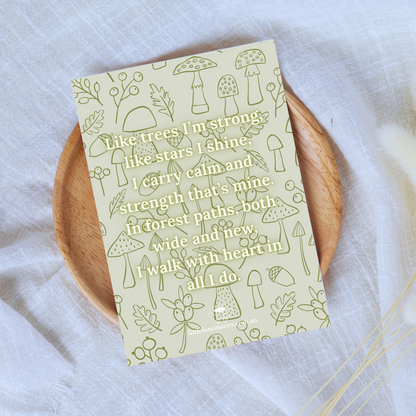 Like trees I'm strong,
like stars I shine,
I carry calm and
strength that's mine.
In forest paths, both
wide and new,
I walk with heart in
all I do.